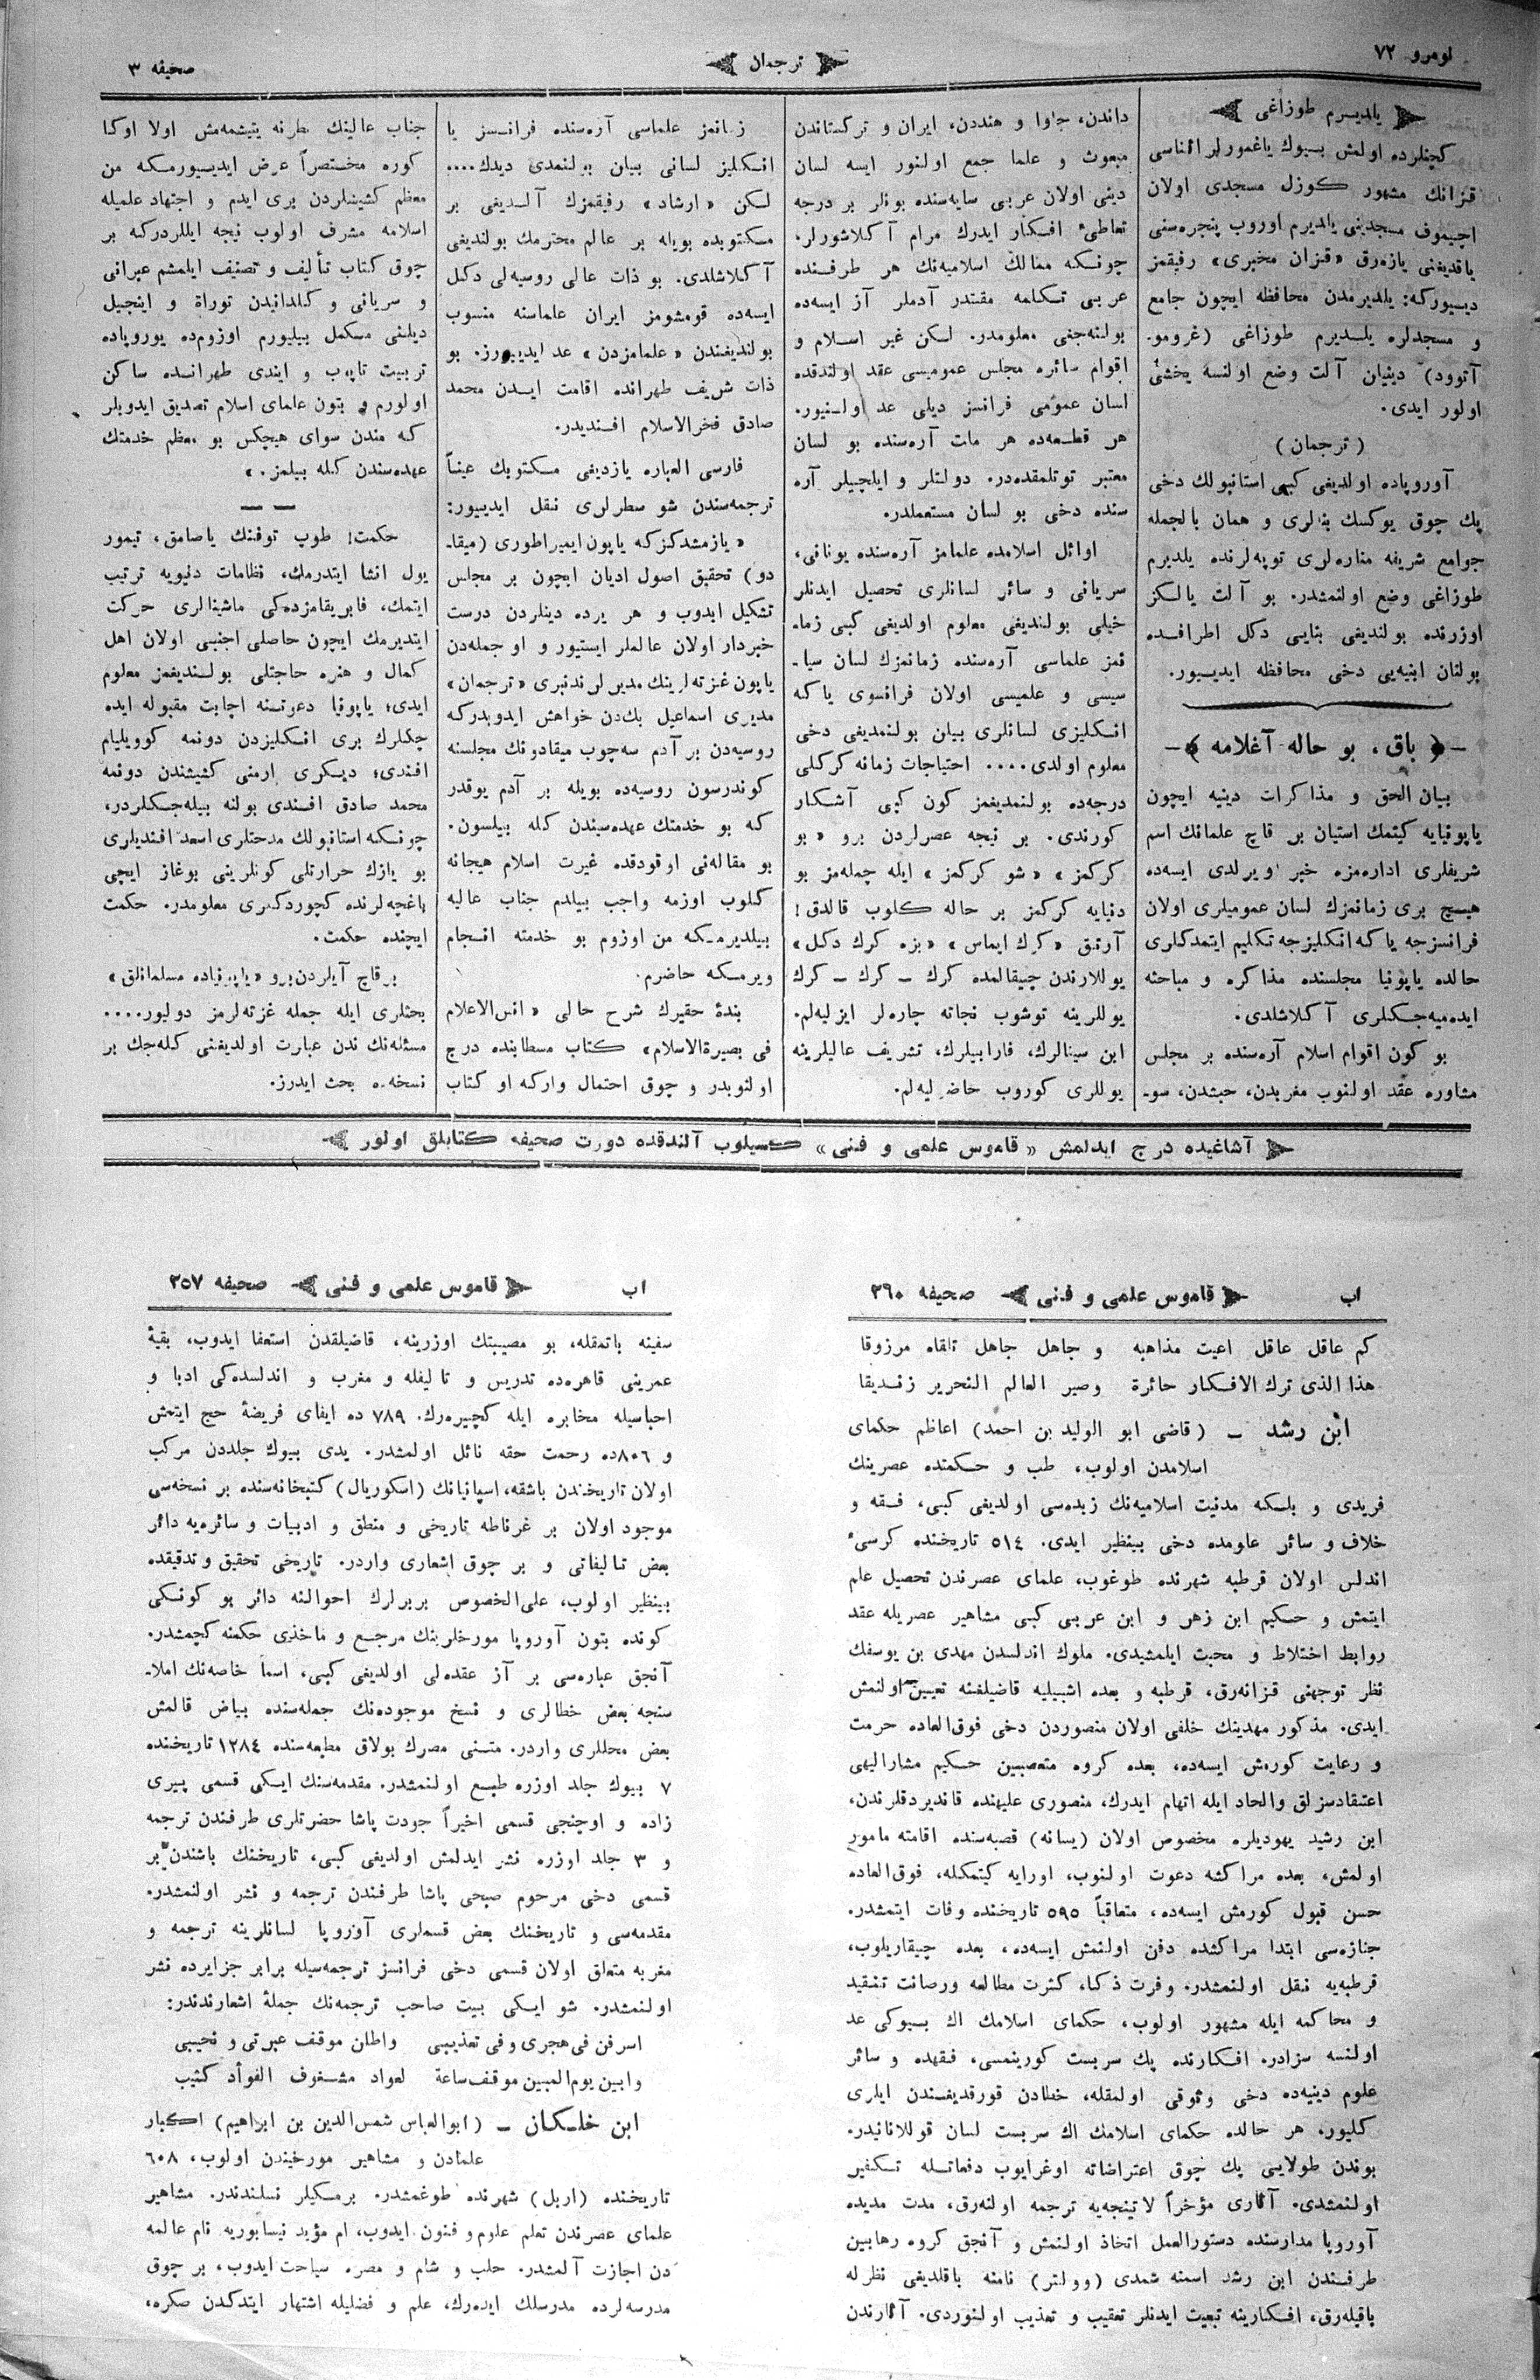 نومرو ۷۲
ترجمان
صحیفه ۳
یلدیرم طوزاغی
کچنلرده اولمش بیوك یاغمورلر اثناسی
قزانك مشهور کوزل مسجدی اولان
اچیموف مسجدینی یالدیرم اوروب پنجره‌سنی
یاقدیغنی یازه‌رق «قزان مخبری» رفیقمز
دییورکه: یلدیرمدن محافظه ایچون جامع
و مسجدلره یلدیرم طوزاغی (غرومو-
آتوود) دینیان آلت وضع اولنسه یخشی
اولور ایدی.
(ترجمان)
آوروپاده اولدیغی کبی استانبولك دخی
پك چوق یوکسك بنالری و همان بالجمله
جوامع شریفه مناره‌لری توپه‌لرنده یلدیرم
طوزاغی وضع اولنمشدر. بو آلت یالکز
اوزرنده بولندیغی بنایی دکل اطرافنده
بولنان ابنیه‌یی دخی محافظه ایدییور.
﴿ باق، بو حاله آغلامه ﴾
بیان الحق و مذاکرات دینیه ایچون
یاپونیایه کیتمك استیان بر قاچ علمانك اسم
شریفلری اداره‌مزه خبر ویرلدی ایسه‌ده
هیچ بری زمانمزك لسان عمومیلری اولان
فرانسزجه یاکه انکلیزجه تکلیم ایتمدکلری
حالده یاپونیا مجلسنده مذاکره و مباحثه
ایده‌میه‌جکلری آکلاشلدی.
بو کون اقوام اسلام آره‌سنده بر مجلس
مشاوره عقد اولنوب مغربدن، حبشدن، سو-
داندن، جاوا و هنددن، ایران و ترکستاندن
مبعوث و علما جمع اولنور ایسه لسان
دینی اولان عربی سایه‌سنده بونلر بر درجه
تعاطیء افکار ایدرك مرام آکلاشورلر.
چونکه ممالك اسلامیه‌نك هر طرفنده
عربی تکلمه مقتدر آدملر آز ایسه‌ده
بولنه‌جغی معلومدر. لکن غیر اسلام و
اقوام سائره مجلس عمومیسی عقد اولندقده
لسان عمومی فرانسز دیلی عد اولنیور.
هر قطعه‌ده هر ملت آره‌سنده بو لسان
معتبر توتلمقده‌در. دولتلر و ایلچیلر آره
سنده دخی بو لسان مستعملدر.
اوائل اسلامده علمامز آره‌سنده یونانی،
سریانی و سائر لسانلری تحصیل ایدنلر
خیلی بولندیغی معلوم اولدیغی کبی زما-
نمز علماسی آره‌سنده زمانمزك لسان سیا-
سیسی و علمیسی اولان فرانسوی یاکه
انکلیزی لسانلری بیان بولنمدیغی دخی
معلوم اولدی.... احتیاجات زمانه کرکلی
درجه‌ده بولنمدیغمز کون کبی آشکار
کورندی. بر نیجه عصرلردن برو «بو
کرکمز» «شو کرکمز» ایله جمله‌مز بو
دنیایه کرکمز بر حاله کلوب قالدق!
آرتق «کرك ایماس» «بزه کرك دکل»
یوللارندن چیقالمده کرك – کرك – کرك
یوللرینه توشوب نجاته چاره‌لر ایزلیه‌لم.
ابن سینالرك، فارابیلرك، تشریف عالیلرینه
یوللری کوروب حاضر لیه‌لم.
زمانمز علماسی آره‌سنده فرانسز یا
انکلیز لسانی بیان بولنمدی دیدك....
لکن «ارشاد» رفیقمزك آلدیغی بر
مکتوبده بویله بر عالم محترمك بولندیغی
آکلاشلدی. بو ذات عالی روسیه‌لی دکل
ایسه‌ده قومشومز ایران علماسنه منسوب
بولندیغندن «علمامزدن» عد ایدییورز. بو
ذات شریف طهرانده اقامت ایدن محمد
صادق فخرالاسلام افندیدر.
فارسی العباره یازدیغی مکتوبك عیناً
ترجمه‌سندن شو سطرلری نقل ایدییور:
«یازمشدکزکه یاپون ایمپراطوری (میقا-
دو) تحقیق اصول ادیان ایچون بر مجلس
تشکیل ایدوب و هر یرده دینلردن درست
خبردار اولان عالملر ایستیور و او جمله‌دن
یاپون غزته‌لرینك مدیرلرندنبری «ترجمان»
مدیری اسماعیل بك‌دن خواهش ایدوبدرکه
روسیه‌دن بر آدم سه‌چوب میقادونك مجلسنه
کوندرسون روسیه‌ده بویله بر آدم یوقدر
که بو خدمتك عهده‌سندن کله بیلسون.
بو مقاله‌نی اوقودقده غیرت اسلام هیجانه
کلوب اوزمه واجب بیلدم جناب عالیه
بیلدیرمکه من اوزوم بو خدمته انجام
ویرمکه حاضرم.
بندهٔ حقیرك شرح حالی «انس‌الاعلام
فی بصیرةالاسلام» کتاب مسطابنده درج
اولنوبدر و چوق احتمال وارکه او کتاب
جناب عالینك نظرنه یتیشمه‌مش اولا اوکا
کوره مختصراً عرض ایدییورمکه من
معظم کشیشلردن بری ایدم و اجتهاد علمیله
اسلامه مشرف اولوب نیجه ایللردرکه بر
چوق کتاب تألیف و تصنیف ایلمشم عبرانی
و سریانی و کلدانیدن توراة و اینجیل
دیلنی مکمل بیلیورم اوزوم‌ده یوروپاده
تربیت تاپوب و ایندی طهرانده ساکن
اولورم و بتون علمای اسلام تصدیق ایدوبلر
که مندن سوای هیچکس بو معظم خدمتك
عهده‌سندن کله بیلمز.»
حکمت! طوپ توفنك یاصامق، تیمور
یول انشا ایتدرمك، نظامات دنیویه ترتیب
ایتمك، فابریقامزده‌کی ماشینالری حرکت
ایتدیرمك ایچون حاصلی اجنبی اولان اهل
کمال و هنره حاجتلی بولندیغمز معلوم
ایدی؛ یاپونیا دعوتنه اجابت مقبوله ایده
جکلرك بری انکلیزدن دونمه کوویلیام
افندی؛ دیکری ارمنی کشیشندن دونمه
محمد صادق افندی بولنه بیله‌جکلردر،
چونکه استانبولك مدحتلری اسعد افندیلری
بو یازك حرارتلی کونلرینی بوغاز ایچی
باغچه‌لرنده کچوردکلری معلومدر. حکمت
ایچنده حکمت.
برقاچ آیلردن‌برو «یاپونیاده مسلمانلق»
بحثلری ایله جمله غزته‌لرمز دولیور....
مسئله‌نك ندن عبارت اولدیغنی کله‌جك بر
نسخه‌ده بحث ایدرز.
آشاغیده درج ایدلمش «قاموس علمی و فنی» کسیلوب آلندقده دورت صحیفه کتابلق اولور
اب
قاموس علمی و فنی
صحیفه ۳٦۰
کم عاقل عاقل اعیت مذاهبه و جاهل جاهل تلقاه مرزوقا
هذا الذی ترك الافکار حائرة وصیر العالم النحریر زندیقا
ابن رشد – (قاضی ابو الولید بن احمد) اعاظم حکمای
اسلامدن اولوب، طب و حکمتده عصرینك
فریدی و بلکه مدنیت اسلامیه‌نك زبده‌سی اولدیغی کبی، فقه و
خلاف و سائر علومده دخی بینظیر ایدی. ٥١٤ تاریخنده کرسیء
اندلس اولان قرطبه شهرنده طوغوب، علمای عصرندن تحصیل علم
ایتمش و حکیم ابن زهر و ابن عربی کبی مشاهیر عصریله عقد
روابط اختلاط و محبت ایلمشیدی. ملوك اندلسدن مهدی بن یوسفك
نظر توجهنی قزانه‌رق، قرطبه و بعده اشبیلیه قاضیلغنه تعیین اولنمش
ایدی. مذکور مهدینك خلفی اولان منصوردن دخی فوق‌العاده حرمت
و رعایت کورمش ایسه‌ده، بعده کروه متعصبین حکیم مشارالیهی
اعتقادسزلق والحاد ایله اتهام ایدرك، منصوری علیهنده قاندیردقلرندن،
ابن رشید یهودیلره مخصوص اولان (یسانه) قصبه‌سنده اقامته مامور
اولمش، بعده مراکشه دعوت اولنوب، اورایه کیتمکله، فوق‌العاده
حسن قبول کورمش ایسه‌ده، متعاقباً ٥٩٥ تاریخنده وفات ایتمشدر.
جنازه‌سی ابتدا مراکشده دفن اولنمش ایسه‌ده، بعده چیقاریلوب،
قرطبه‌یه نقل اولنمشدر. وفرت ذکا، کثرت مطالعه ورصانت تنقید
و محاکمه ایله مشهور اولوب، حکمای اسلامك اك بیوکی عد
اولنسه سزادر. افکارنده پك سربست کورینمسی، فقهده و سائر
علوم دینیه‌ده دخی وثوقی اولمقله، خطادن قورقدیغندن ایلری
کلیور. هر حالده حکمای اسلامك اك سربست لسان قوللانانیدر.
بوندن طولایی پك چوق اعتراضاته اوغرایوب دفعاتله تکفیر
اولنمشدی. آثاری مؤخراً لاتینجه‌یه ترجمه اولنه‌رق، مدت مدیده
آوروپا مدارسنده دستورالعمل اتخاذ اولنمش و آنجق کروه رهابین
طرفندن ابن رشد اسمنه شمدی (وولتر) نامنه باقلدیغی نظرله
باقیله‌رق، افکارینه تبعیت ایدنلر تعقیب و تعذیب اولنوردی. آثارندن
اب
قاموس علمی و فنی
صحیفه ۳۵۷
سفینه باتمقله، بو مصیبتك اوزرینه، قاضیلقدن استعفا ایدوب، بقیهٔ
عمرینی قاهره‌ده تدریس و تالیفله و مغرب و اندلسده‌کی ادبا و
احباسیله مخابره ایله کچیره‌رك. ٧٨٩ ده ایفای فریضهٔ حج ایتمش
و ٨٠٦ده رحمت حقه نائل اولمشدر. یدی بیوك جلددن مرکب
اولان تاریخندن باشقه، اسپانیانك (اسکوریال) کتبخانه‌سنده بر نسخه‌سی
موجود اولان بر غرناطه تاریخی و منطق و ادبیات و سائره‌یه دائر
بعض تالیفاتی و بر چوق اشعاری واردر. تاریخی تحقیق و تدقیقده
بینظیر اولوب، علی‌الخصوص بربرلرك احوالنه دائر بو کونکی
کونده بتون آوروپا مورخلرینك مرجع و ماخذی حکمنه کچمشدر.
آنجق عباره‌سی بر آز عقده‌لی اولدیغی کبی، اسما خاصه‌نك املا-
سنجه بعض خطالری و نسخ موجوده‌نك جمله‌سنده بیاض قالمش
بعض محللری واردر. متنی مصرك بولاق مطبعه‌سنده ١٢٨٤ تاریخنده
٧ بیوك جلد اوزره طبع اولنمشدر. مقدمه‌سنك ایکی قسمی پیری
زاده و اوچنجی قسمی اخیراً جودت پاشا حضرتلری طرفندن ترجمه
و ٣ جلد اوزره نشر ایدلمش اولدیغی کبی، تاریخنك باشندن بر
قسمی دخی مرحوم صبحی پاشا طرفندن ترجمه و نشر اولنمشدر.
مقدمه‌سی و تاریخنك بعض قسملری آوروپا لسانلرینه ترجمه و
مغربه متعلق اولان قسمی دخی فرانسز ترجمه‌سیله برابر جزایرده نشر
اولنمشدر. شو ایکی بیت صاحب ترجمه‌نك جملهٔ اشعارندندر:
اسرفن فی هجری و فی تعذیبی واطلن موقف عبرتی و نحیبی
وابین یوم‌البین موقف ساعة لوداع مشغوف الفؤاد کئیب
ابن خلکان – (ابوالعباس شمس‌الدین بن ابراهیم) اکبار
علمادن و مشاهیر مورخیندن اولوب، ٦٠٨
تاریخنده (اربل) شهرنده طوغمشدر. برمکیلر نسلندندر. مشاهیر
علمای عصرندن تعلم علوم و فنون ایدوب، ام مؤید نیسابوریه نام عالمه
دن اجازت آلمشدر. حلب و شام و مصره سیاحت ایدوب، بر چوق
مدرسه‌لرده مدرسلك ایده‌رك، علم و فضلیله اشتهار ایتدکدن صکره،